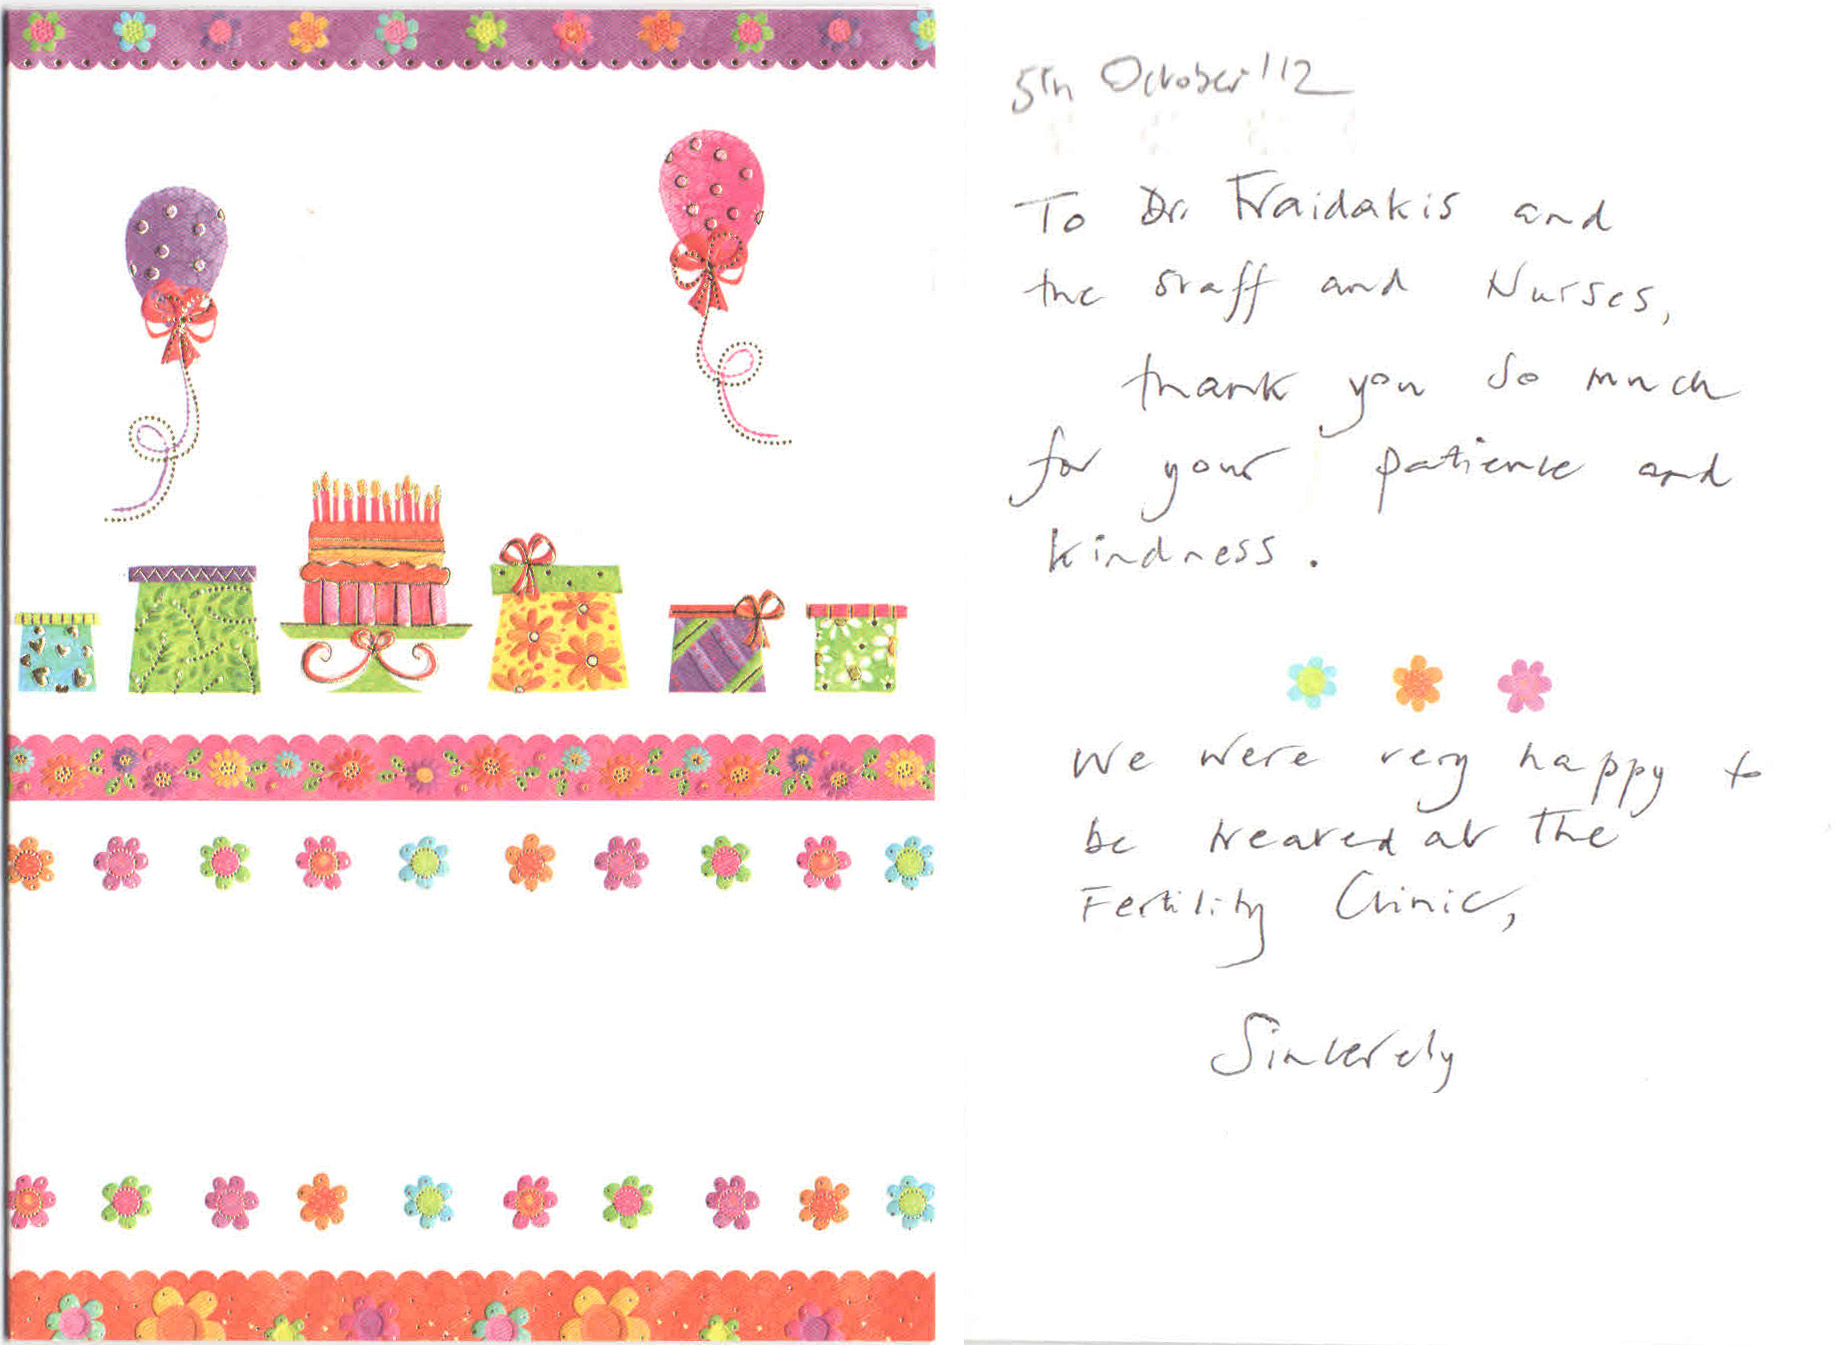 5th October '12
To Dr. Fraidakis and
the staff and Nurses,
thank you so much
for your patience and
kindness.
We were very happy to
be treated at the
Fertility Clinic,
Sincerely